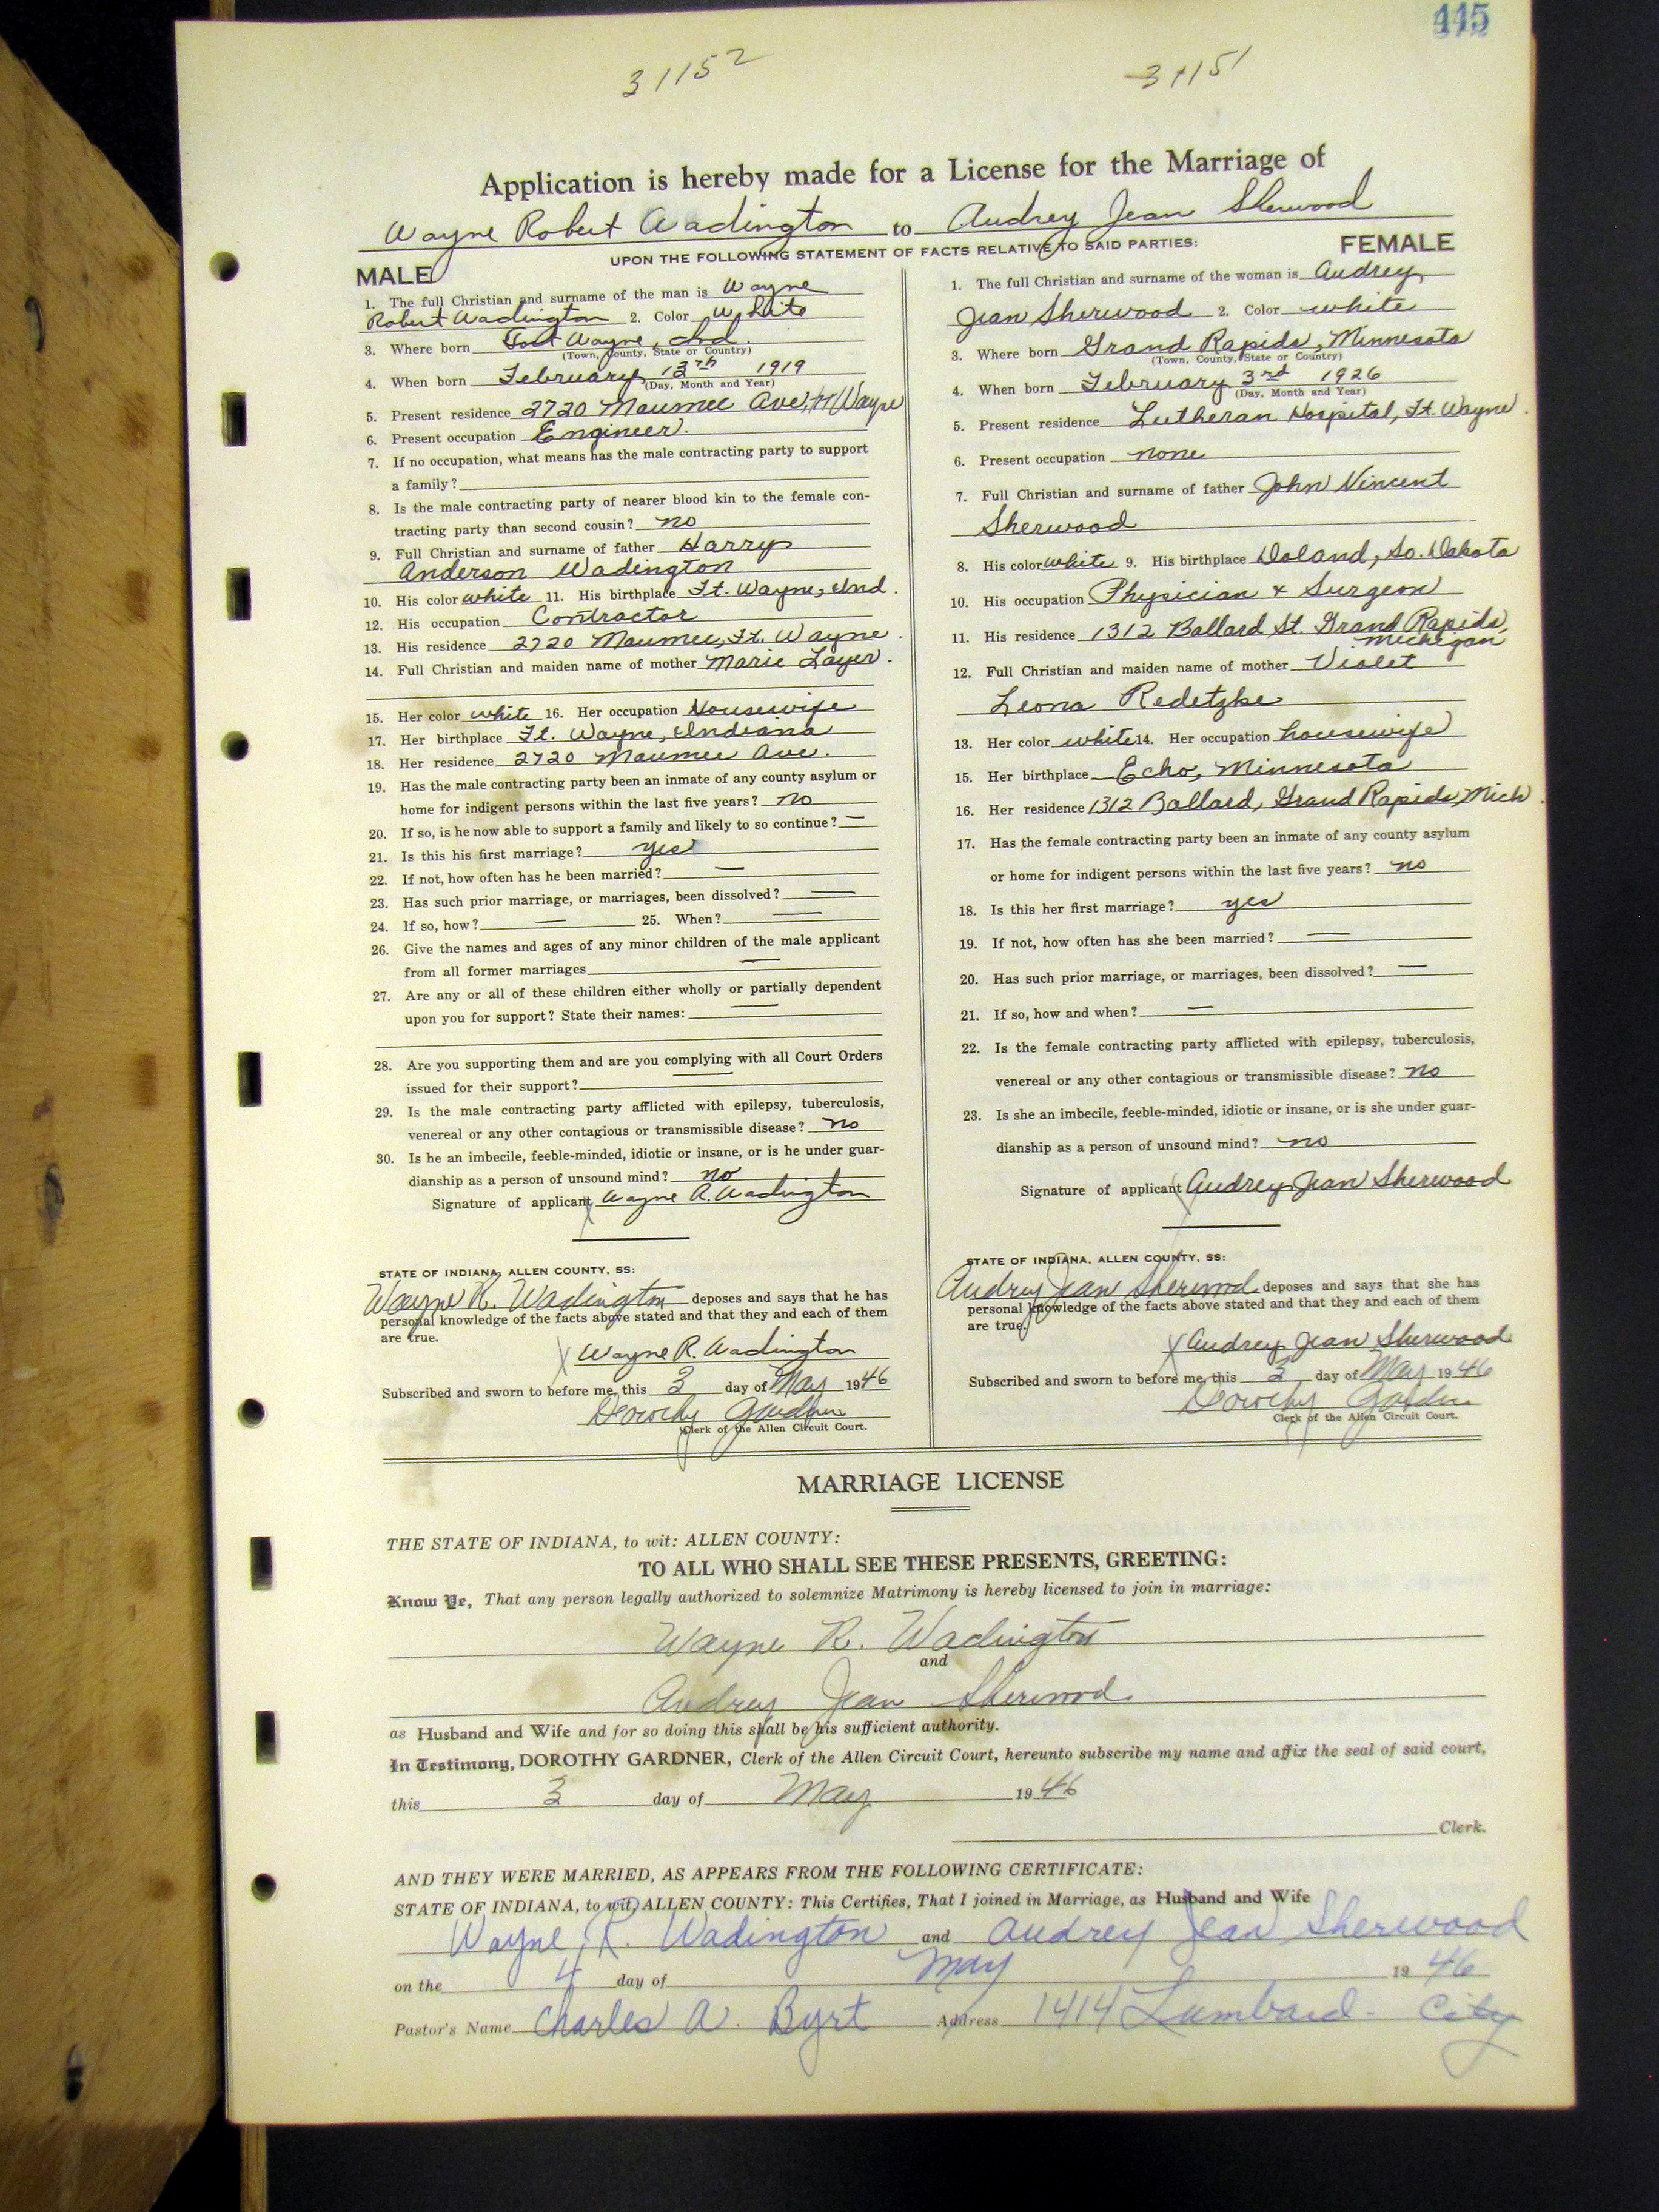 445
31152 31151
Application is hereby made for a License for the Marriage of
Wayne Robert Wadington to Audrey Jean Sherwood
UPON THE FOLLOWING STATEMENT OF FACTS RELATIVE TO SAID PARTIES:
MALE
1. The full Christian and surname of the man is Wayne
Robert Wadington 2. Color White
3. Where born Fort Wayne, Ind.
(Town, County, State or Country)
4. When born February 13th 1919
(Day, Month and Year)
5. Present residence 2720 Maumee Ave, Ft Wayne
6. Present occupation Engineer.
7. If no occupation, what means has the male contracting party to support
a family?
8. Is the male contracting party of nearer blood kin to the female con-
tracting party than second cousin? no
9. Full Christian and surname of father Harry
Anderson Wadington
10. His color white 11. His birthplace Ft. Wayne, Ind.
12. His occupation Contractor
13. His residence 2720 Maumee, Ft. Wayne.
14. Full Christian and maiden name of mother Marie Layer.
15. Her color white 16. Her occupation Housewife
17. Her birthplace Ft. Wayne, Indiana
18. Her residence 2720 Maumee Ave.
19. Has the male contracting party been an inmate of any county asylum or
home for indigent persons within the last five years? no
20. If so, is he now able to support a family and likely to so continue? —
21. Is this his first marriage? yes
22. If not, how often has he been married? —
23. Has such prior marriage, or marriages, been dissolved? —
24. If so, how? — 25. When? —
26. Give the names and ages of any minor children of the male applicant
from all former marriages —
27. Are any or all of these children either wholly or partially dependent
upon you for support? State their names: —
28. Are you supporting them and are you complying with all Court Orders
issued for their support? —
29. Is the male contracting party afflicted with epilepsy, tuberculosis,
venereal or any other contagious or transmissible disease? no
30. Is he an imbecile, feeble-minded, idiotic or insane, or is he under guar-
dianship as a person of unsound mind? no
Signature of applicant X Wayne R. Wadington
STATE OF INDIANA, ALLEN COUNTY, SS:
Wayne R. Wadington deposes and says that he has
personal knowledge of the facts above stated and that they and each of them
are true.
X Wayne R. Wadington
Subscribed and sworn to before me, this 3 day of May 1946
Dorothy Gardner
Clerk of the Allen Circuit Court.
FEMALE
1. The full Christian and surname of the woman is Audrey
Jean Sherwood 2. Color white
3. Where born Grand Rapids, Minnesota
(Town, County, State or Country)
4. When born February 3rd 1926
(Day, Month and Year)
5. Present residence Lutheran Hospital, Ft. Wayne.
6. Present occupation none
7. Full Christian and surname of father John Vincent
Sherwood
8. His color white 9. His birthplace Doland, So. Dakota
10. His occupation Physician & Surgeon
11. His residence 1312 Ballard St. Grand Rapids,
Michigan
12. Full Christian and maiden name of mother Violet
Leona Redetzke
13. Her color white 14. Her occupation housewife
15. Her birthplace Echo, Minnesota
16. Her residence 1312 Ballard, Grand Rapids, Mich.
17. Has the female contracting party been an inmate of any county asylum
or home for indigent persons within the last five years? no
18. Is this her first marriage? yes
19. If not, how often has she been married? —
20. Has such prior marriage, or marriages, been dissolved? —
21. If so, how and when? —
22. Is the female contracting party afflicted with epilepsy, tuberculosis,
venereal or any other contagious or transmissible disease? no
23. Is she an imbecile, feeble-minded, idiotic or insane, or is she under guar-
dianship as a person of unsound mind? no
Signature of applicant X Audrey Jean Sherwood
STATE OF INDIANA, ALLEN COUNTY, SS:
Audrey Jean Sherwood deposes and says that she has
personal knowledge of the facts above stated and that they and each of them
are true.
X Audrey Jean Sherwood
Subscribed and sworn to before me, this 3 day of May 1946
Dorothy Gardner
Clerk of the Allen Circuit Court.
MARRIAGE LICENSE
THE STATE OF INDIANA, to wit: ALLEN COUNTY:
TO ALL WHO SHALL SEE THESE PRESENTS, GREETING:
Know Ye, That any person legally authorized to solemnize Matrimony is hereby licensed to join in marriage:
Wayne R. Wadington
and
Audrey Jean Sherwood
as Husband and Wife and for so doing this shall be his sufficient authority.
In Testimony, DOROTHY GARDNER, Clerk of the Allen Circuit Court, hereunto subscribe my name and affix the seal of said court,
this 3 day of May 1946
Clerk.
AND THEY WERE MARRIED, AS APPEARS FROM THE FOLLOWING CERTIFICATE:
STATE OF INDIANA, to wit, ALLEN COUNTY: This Certifies, That I joined in Marriage, as Husband and Wife
Wayne R. Wadington and Audrey Jean Sherwood
on the 4 day of May 1946
Pastor's Name Charles A. Byrt Address 1414 Lumbard - City